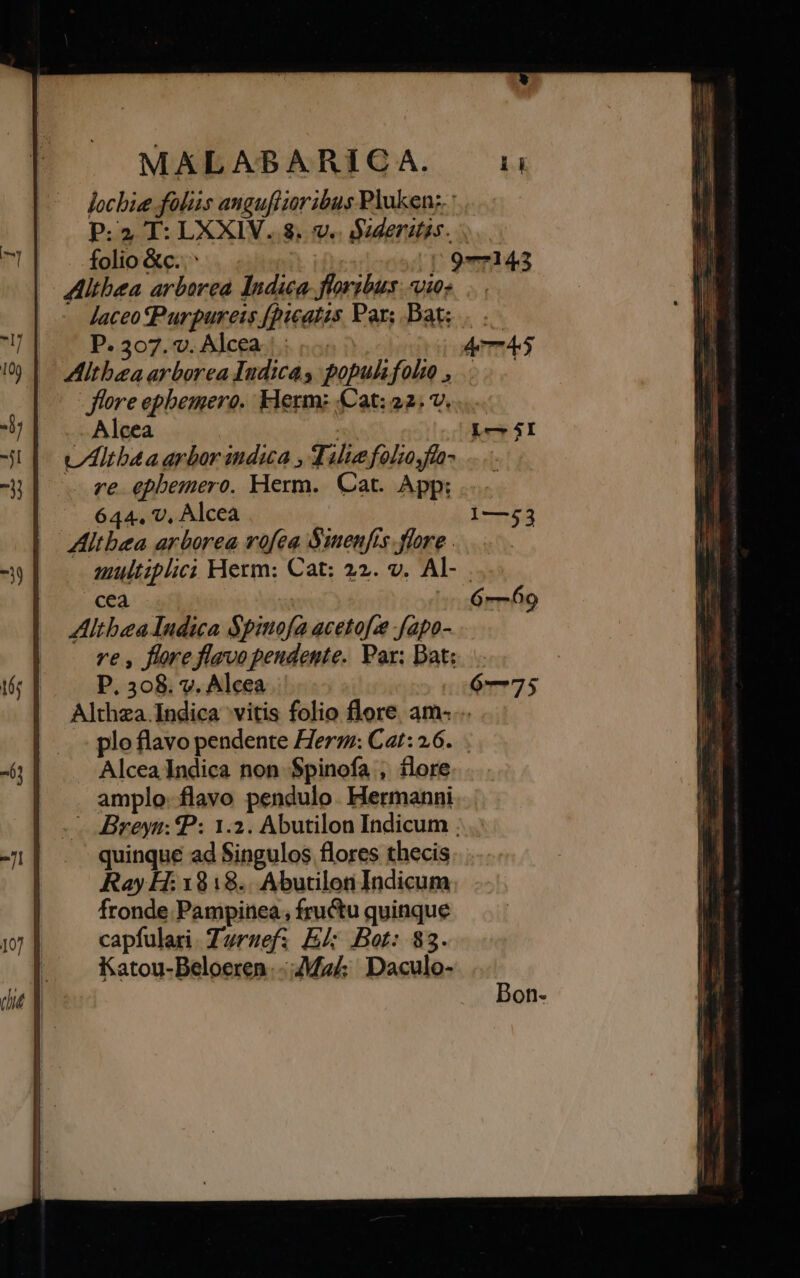 MALABARICA. 11
lochiæ foliis anguſtioribus Pluken:
P: 2 T: LXXIV. 8. v. Sideritis.
folio &c. 9—143
Althæa arborea Indica floribus vio-
laceo Purpureis ſpicatis Par: Bat:
P. 307. v. Alcea 4—45
Althæa arborea Indica, populi folio,
flore ephemero. Herm: Cat: 22. v.
Alcea 1—51
Althæa arbor indica, Tiliæ folio, flo-
re ephemero. Herm. Cat. App:
644. v. Alcea 1—53
Althæa arborea roſea Sinenſis flore
multiplici Herm: Cat: 22. v. Al-
cea 6—69
Althæa Indica Spinoſa acetoſæ ſapo-
re, flore flavo pendente. Par: Bat:
P. 308. v. Alcea 6—75
Althæa Indica vitis folio flore am-
plo flavo pendente Herm: Cat: 26.
Alcea Indica non Spinoſa, flore
amplo flavo pendulo Hermanni
Breyn: P: 1.2. Abutilon Indicum
quinque ad Singulos flores thecis
Ray H: 1818. Abutilon Indicum
fronde Pampinea, fructu quinque
capſulari Turneſ: El: Bot: 83.
Katou-Beloeren Mal: Daculo-
Bon-